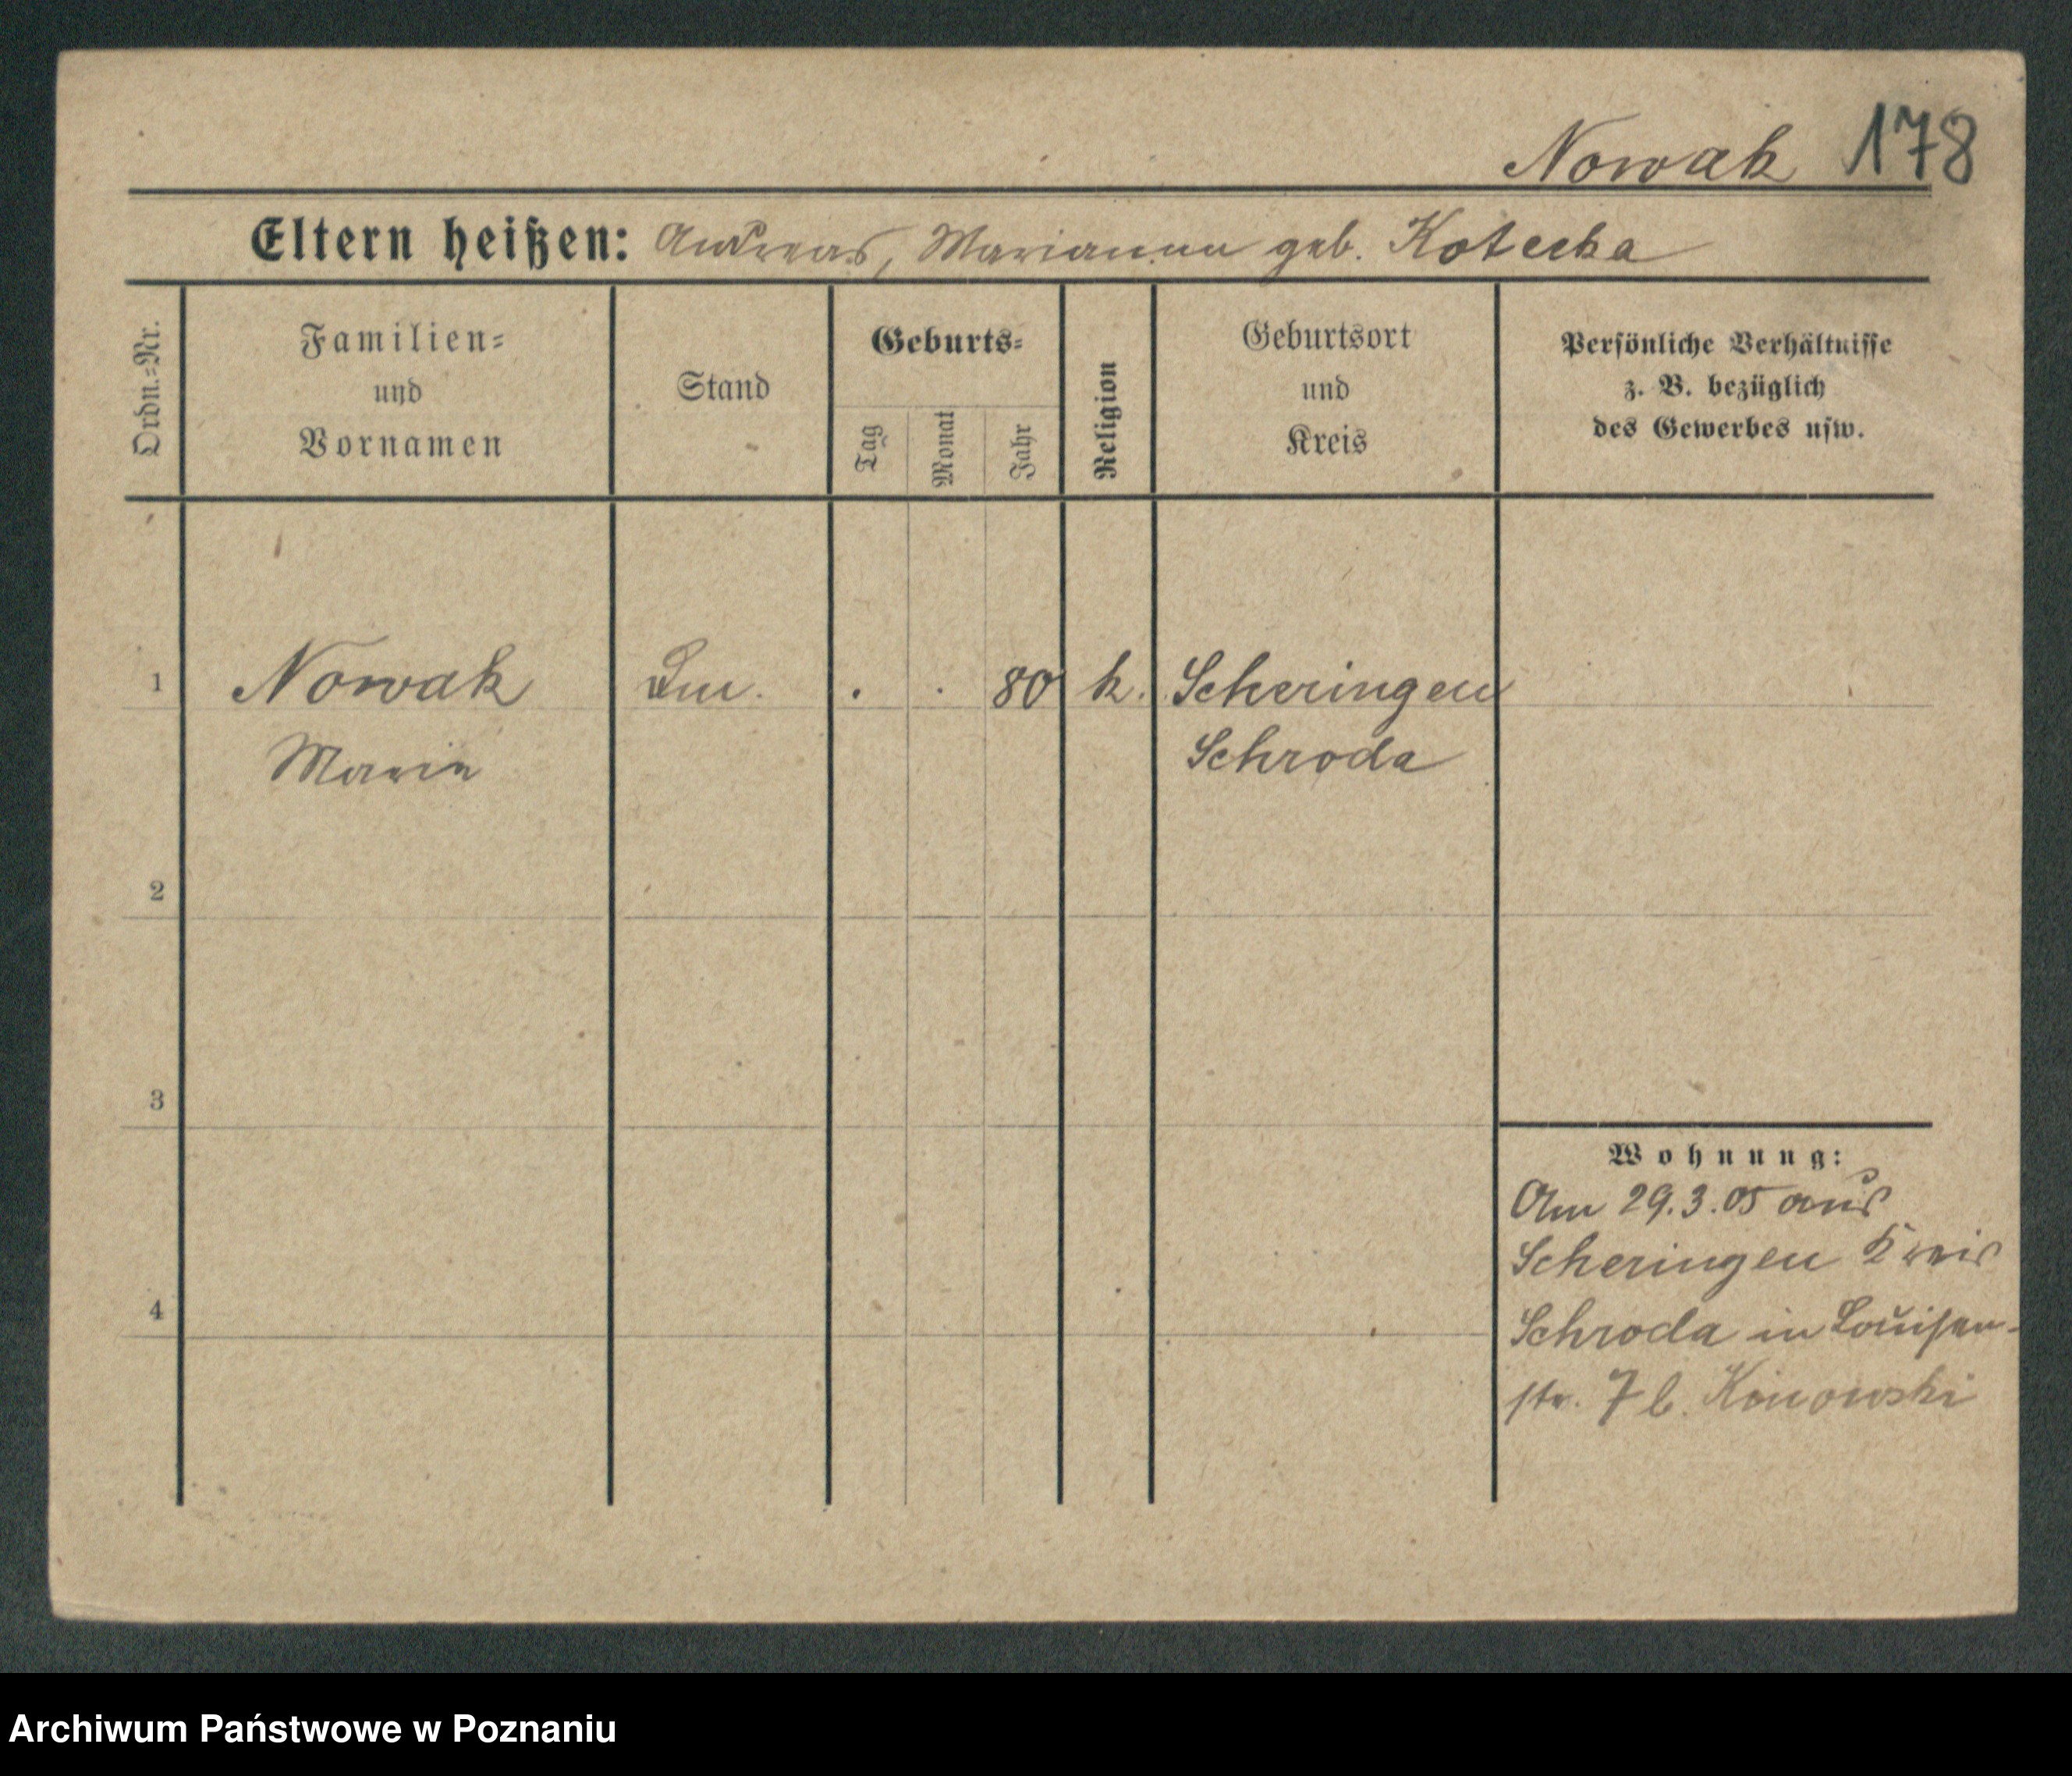 Nowak 178
Eltern heißen: Andreas, Marianna geb. Kotecka
Ordn.=Nr.
Familien=
und
Vornamen
Stand
Geburts=
Tag
Monat
Jahr
Religion
Geburtsort
und
Kreis
Persönliche Verhältnisse
z. B. bezüglich
des Gewerbes usw.
1 Nowak . . 80 k. Scheringen
Marie Schroda
2
3
4
Wohnung:
Am 29.3.05 aus
Scheringen Kreis
Schroda in Louisen-
str. 7 b.
Archiwum Państwowe w Poznaniu